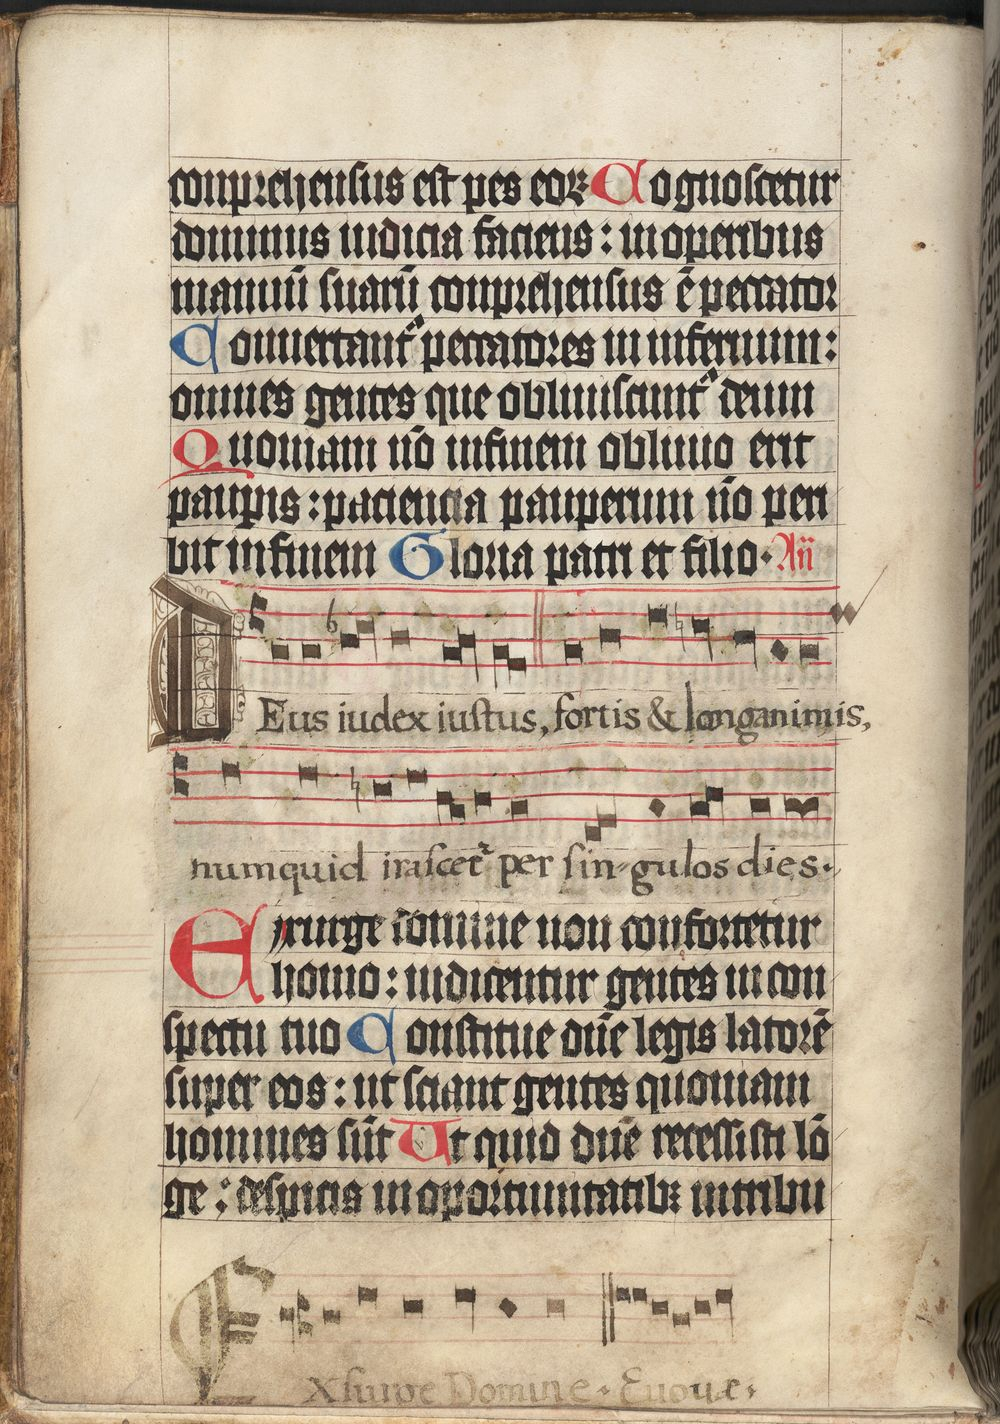 conprehensus est pes eoꝝ Cognoscetur
dominus iudicia faciens : in operibus
manuū suarū conprehensus ē peccator
Conuertant᷑ peccatores in infernum :
omnes gentes que obliuiscunt᷑ deum
Quoniam nō infinem obliuio erit
paupis : paciencia pauperum nō peri
bit infinem Gloria patri et filio · Añ
DEus iudex iustus, fortis & longanimis,
numquid irascet᷑ per sin-gulos dies.
Exurge domine non confortetur
homo : iudicentur gentes in con
spectu tuo Constitue dūe legis latorē
super eos : ut sciant gentes quoniam
homines sūt Ut quid dūe recessisti lō
ge : despicis in oportunitatibꝫ in tribu
EXsurge Domine. Euouæ.